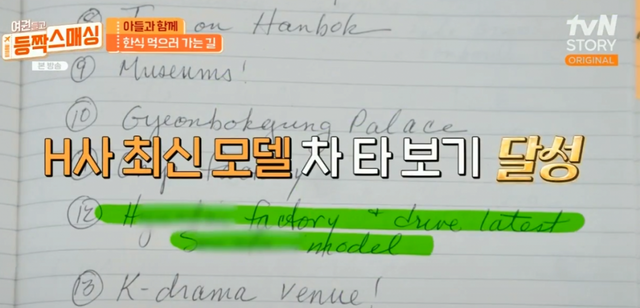 여권들고
등짝스매싱
본 방송
아들과 함께
한식 먹으러 가는 길
tvN
STORY
ORIGINAL
on Hanbok
⑨ Museums!
⑩ Gyeongbokgung Palace
H사 최신 모델 차 타 보기 달성
⑫ factory & drive latest
model
⑬ K-drama venue!